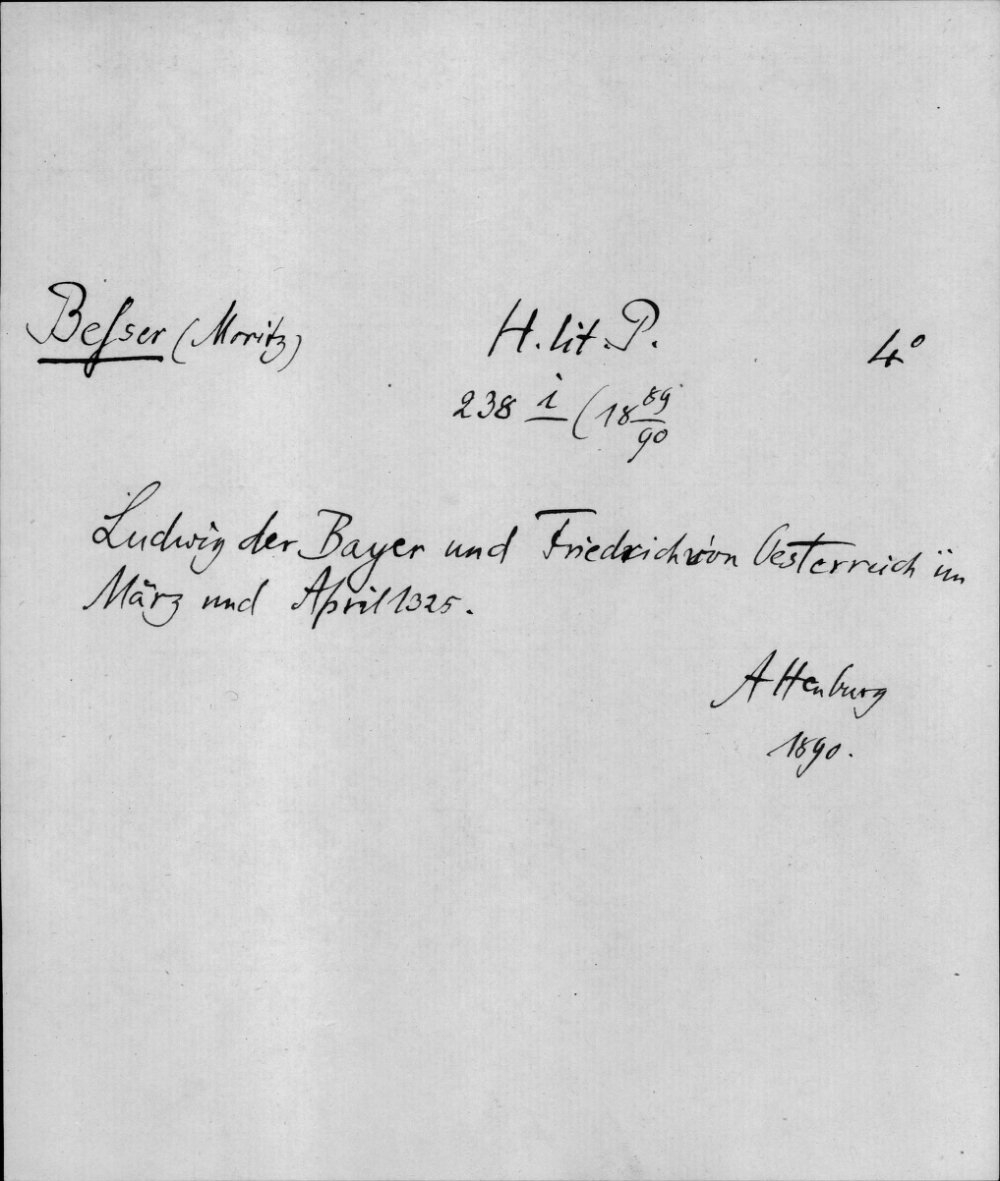 Beſser (Moritz) H. lit. P. 4°
238 i (18 89/90
Ludwig der Bayer und Friedrich von Oesterreich im
März und April 1325.
Altenburg
1890.